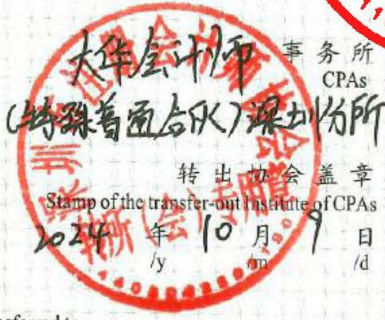 大华会计师 事务所
CPAs
(特殊普通合伙)深圳分所
转出协会盖章
Stamp of the transfer-out Institute of CPAs
2024 年 10 月 9 日
/y /m /d